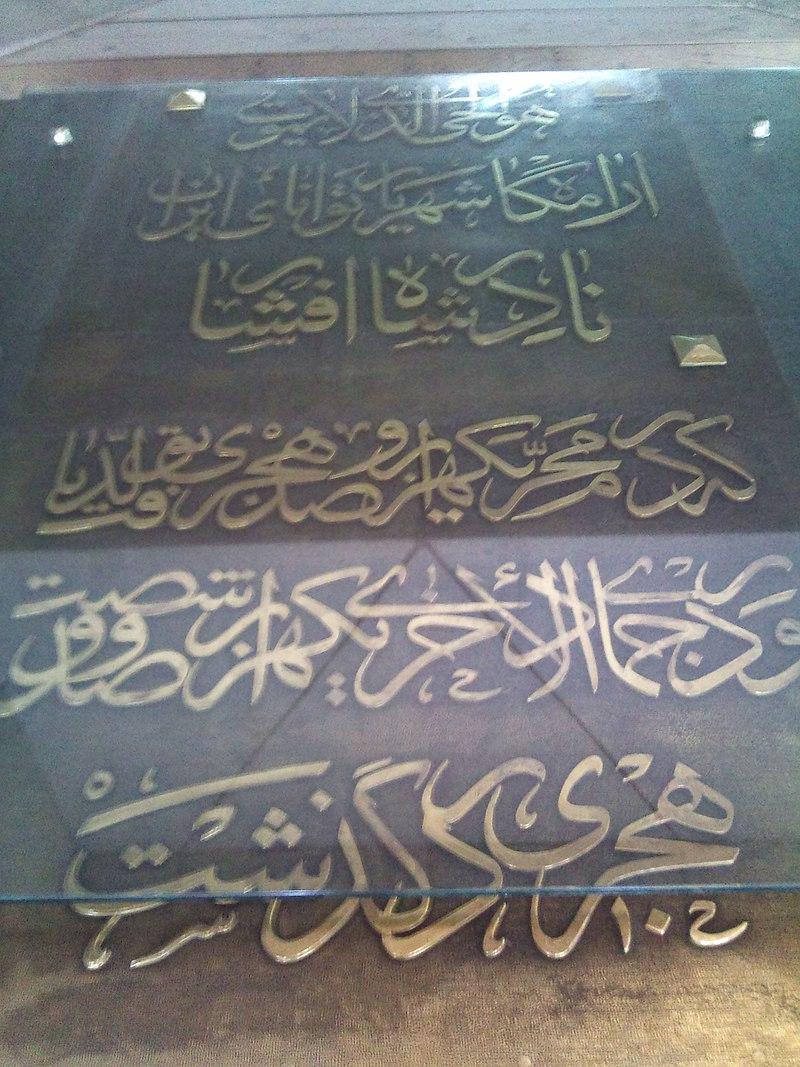 هو الحی الذی لایموت
ارامگاه شهریار توانای ایران
نادرشاه افشار
که در محرّم یکهزار و صد هجری تولّد یافت
و در جمادی الاخری یکهزار و صد و شصت
هجری درگذشت